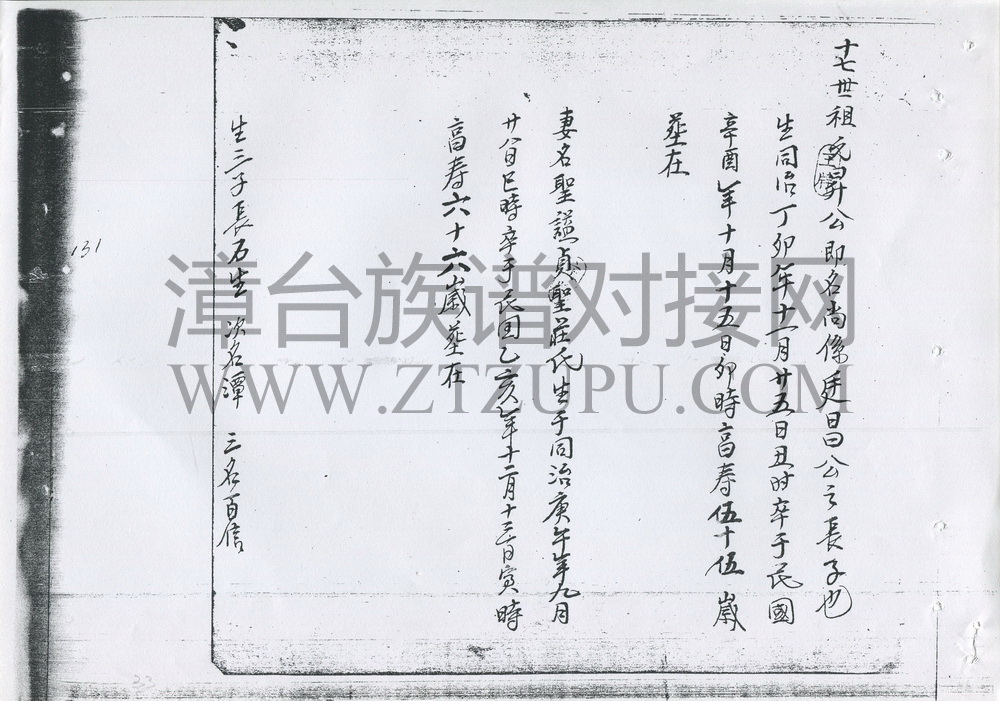 十七世祖昇公即名尚係廷昌公之長子也
生同治丁卯年十一月廿五日丑时卒于民國
辛酉年十月十五日卯時高寿伍十伍歲
葬在
妻名聖謚貞聖莊氏生于同治庚午年九月
廿八日巳時卒于民国乙亥年十二月十三日寅時
高寿六十六歲葬在
生三子長石生 次名潭 三名百信
131
33
漳台族谱对接网
WWW.ZTZUPU.COM